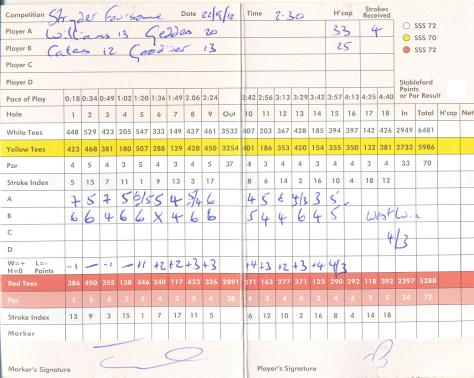 Competition Stryder Foursome Date 22/9/12 Time 2-30 H'cap Strokes Received SSS 72
Player A Williams 13 Geddes 20 33 4 SSS 70
Player B Cates 12 Goodyer 13 25 SSS 72
Player C
Player D Stableford Points or Par Result
Pace of Play 0:18 0:34 0:49 1:02 1:20 1:36 1:49 2:06 2:24 2:42 2:56 3:10 3:29 3:42 3:57 4:12 4:25 4:40
Hole 1 2 3 4 5 6 7 8 9 Out 10 11 12 13 14 15 16 17 18 In Total H'cap Net
White Tees 448 529 423 205 547 333 149 437 461 3532 407 203 367 428 185 394 397 142 426 2949 6481
Yellow Tees 423 468 381 180 507 288 129 428 450 3254 401 186 353 420 154 355 350 132 381 2732 5986
Par 4 5 4 3 5 4 3 4 5 37 4 3 4 4 3 4 4 3 4 33 70
Stroke Index 5 15 7 11 1 9 13 3 17 8 6 14 2 16 10 4 18 12
A 7 5 7 5
B 6 6 4 6 6 X 4 6 6 5 4 4 6 4 5
C
D 4/3
W=+ L=- H=0 Points
Red Tees 386 450 355 138 446 240 117 433 326 2891 371 163 277 371 123 290 292 118 392 2397 5288
Par 5 5 4 3 5 4 3 5 4 38 34 72
Stroke Index 13 9 3 15 1 7 17 11 5 6 12 8 2 16 10 4 18 14
Marker
Marker's Signature Player's Signature